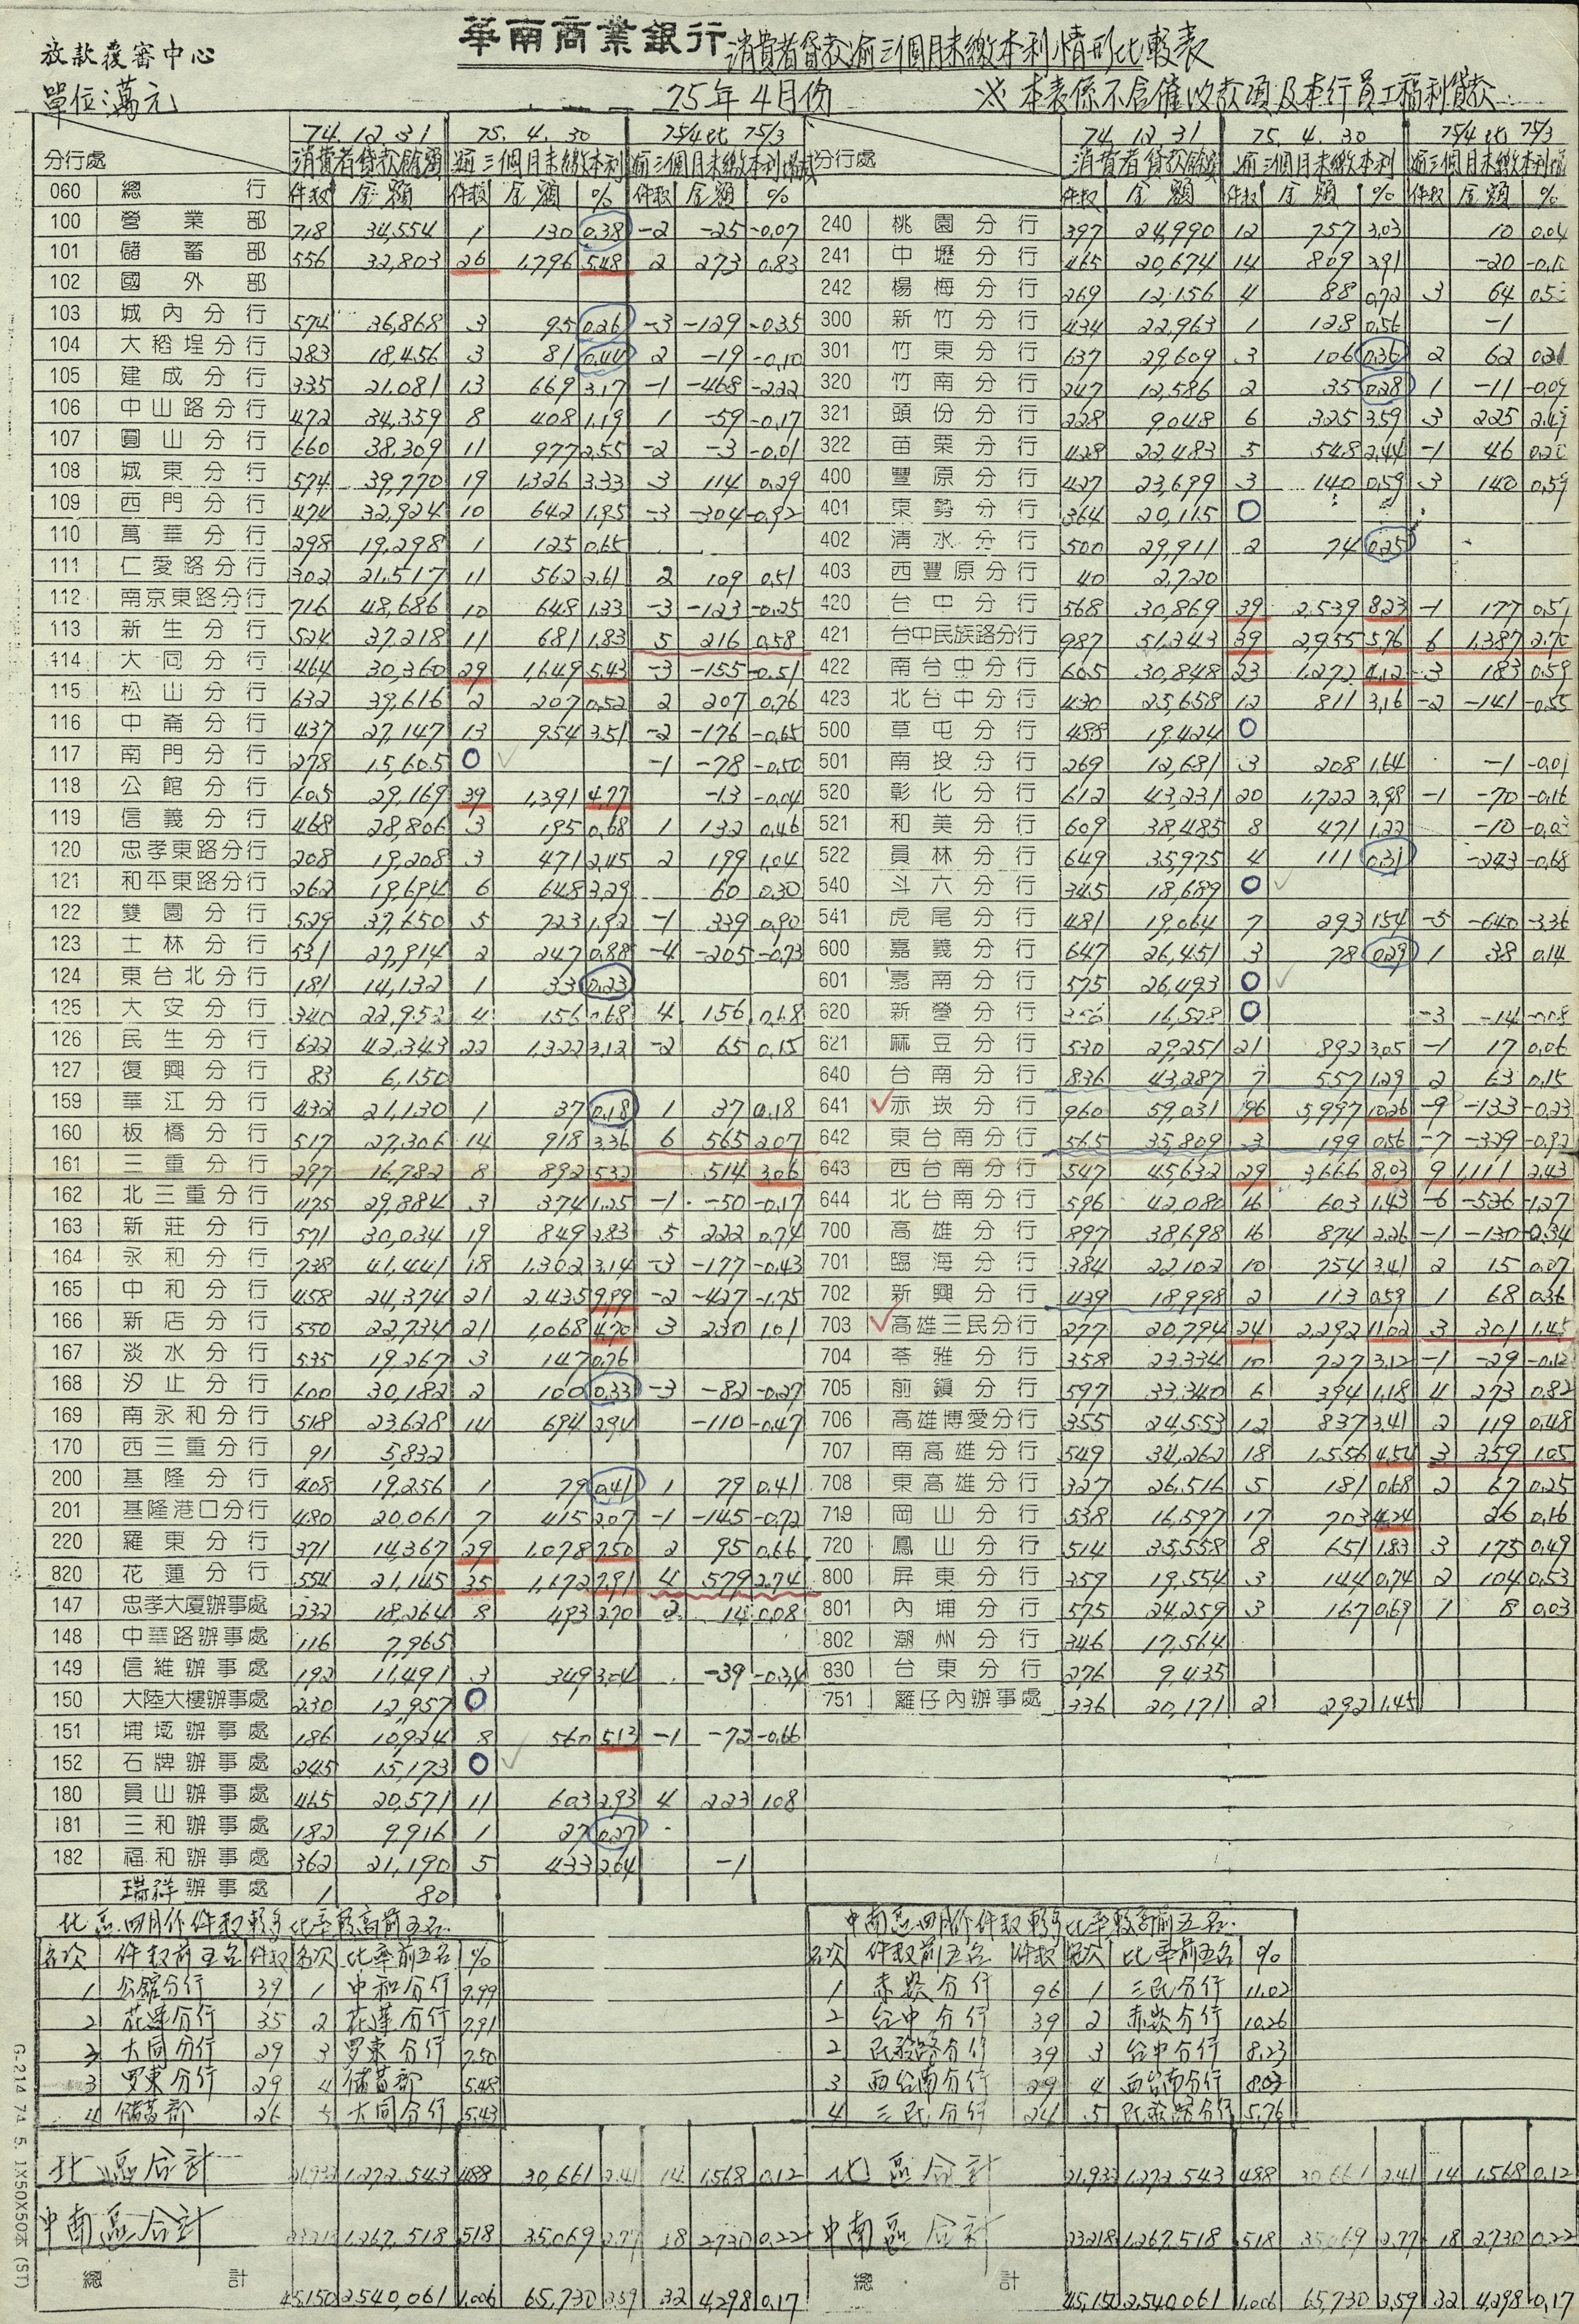 華南商業銀行 消費者貸款逾三個月未繳本利情形比較表
放款覆審中心
單位:萬元 75年4月份 ※本表係不含催收款項及本行員工福利貸款
74.12.31 75.4.30 75/4比75/3 74.12.31 75.4.30 75/4比75/3
分行處 消費者貸款餘額 逾三個月未繳本利 逾三個月未繳本利增減 分行處 消費者貸款餘額 逾三個月未繳本利 逾三個月未繳本利增
060 總行 件數 金額 件數 金額 % 件數 金額 % 件數 金額 件數 金額 % 件數 金額 %
100 營業部 718 34,554 1 130 0.38 -2 -25 -0.07 240 桃園分行 397 24,990 12 757 3.03 10 0.04
101 儲蓄部 556 32,803 26 1,796 5.48 2 273 0.83 241 中壢分行 465 20,674 14 809 3.91 -20 -0.10
102 國外部 242 楊梅分行 269 12,156 4 88 0.72 3 64 0.5
103 城內分行 574 36,868 3 95 0.26 -3 -129 -0.35 300 新竹分行 434 22,963 1 128 0.56 -1
104 大稻埕分行 283 18,456 3 81 0.44 2 -19 -0.10 301 竹東分行 637 29,609 3 106 0.36 2 62 0.21
105 建成分行 335 21,081 13 669 3.17 -1 -468 -2.22 320 竹南分行 247 12,586 2 35 0.28 1 -11 -0.09
106 中山路分行 472 34,359 8 408 1.19 1 -59 -0.17 321 頭份分行 228 9,048 6 325 3.59 3 225 2.49
107 圓山分行 660 38,309 11 977 2.55 -2 -3 -0.01 322 苗栗分行 428 22,483 5 548 2.44 -1 46 0.20
108 城東分行 574 39,770 19 1,326 3.33 3 114 0.29 400 豐原分行 427 23,699 3 140 0.59 3 140 0.59
109 西門分行 474 32,924 10 642 1.95 -3 -304 -0.92 401 東勢分行 364 20,115 0
110 萬華分行 298 19,298 1 125 0.65 402 清水分行 500 29,911 2 74 0.25
111 仁愛路分行 302 21,517 11 562 2.61 2 109 0.51 403 西豐原分行 40 2,720
112 南京東路分行 716 48,686 10 648 1.33 -3 -123 -0.25 420 台中分行 568 30,869 39 2,539 8.23 -1 177 0.57
113 新生分行 524 37,218 11 681 1.83 5 216 0.58 421 台中民族路分行 987 51,343 39 2,955 5.76 6 1,387 2.70
114 大同分行 464 30,360 29 1,649 5.43 -3 -155 -0.51 422 南台中分行 665 30,848 23 1,272 4.12 3 183 0.59
115 松山分行 632 39,616 2 207 0.52 2 207 0.76 423 北台中分行 430 25,658 12 811 3.16 -2 -141 -0.55
116 中崙分行 437 27,147 13 954 3.51 -2 -176 -0.65 500 草屯分行 488 19,424 0
117 南門分行 278 15,605 0 -1 -78 -0.50 501 南投分行 269 12,681 3 208 1.64 -1 -0.01
118 公館分行 605 29,169 39 1,391 4.77 -13 -0.04 520 彰化分行 612 43,231 20 1,722 3.98 -1 -70 -0.16
119 信義分行 468 28,806 3 195 0.68 1 132 0.46 521 和美分行 609 38,485 8 471 1.22 -10 -0.03
120 忠孝東路分行 208 19,208 3 471 2.45 2 199 1.04 522 員林分行 649 35,975 4 111 0.31 -243 -0.68
121 和平東路分行 262 19,694 6 648 3.29 60 0.30 540 斗六分行 345 18,689 0
122 雙園分行 529 37,650 5 723 1.92 -1 339 0.90 541 虎尾分行 481 19,064 7 293 1.54 -5 -640 -3.36
123 士林分行 531 27,914 2 247 0.88 -4 -205 -0.73 600 嘉義分行 647 26,451 3 78 0.29 1 38 0.14
124 東台北分行 181 14,132 1 33 0.23 601 嘉南分行 575 26,493 0
125 大安分行 340 22,952 4 156 0.68 4 156 0.68 620 新營分行 16,528 0 -3 -14 -0.08
126 民生分行 622 42,343 22 1,322 3.12 -2 65 0.15 621 麻豆分行 530 29,251 21 892 3.05 -1 17 0.06
127 復興分行 83 6,150 640 台南分行 836 43,287 7 557 1.29 2 63 0.15
159 華江分行 432 21,130 1 37 0.18 1 37 0.18 641 赤崁分行 960 59,031 96 5,997 10.26 -9 -133 -0.23
160 板橋分行 517 27,306 14 918 3.36 6 565 2.07 642 東台南分行 565 35,809 3 199 0.56 -7 -329 -0.92
161 三重分行 297 16,782 8 892 5.32 514 3.06 643 西台南分行 547 45,632 29 3,666 8.03 9 1,111 2.43
162 北三重分行 475 29,884 3 374 1.25 -1 -50 -0.17 644 北台南分行 596 42,080 16 603 1.43 -6 -536 -1.27
163 新莊分行 571 30,034 19 849 2.83 5 222 0.74 700 高雄分行 897 38,698 16 874 2.26 -1 -130 -0.34
164 永和分行 738 41,441 18 1,302 3.14 -3 -177 -0.43 701 臨海分行 384 22,102 10 754 3.41 2 15 0.07
165 中和分行 458 24,374 21 2,435 9.99 -2 -427 -1.75 702 新興分行 439 18,998 2 113 0.59 1 68 0.36
166 新店分行 550 22,734 21 1,068 4.70 3 230 1.01 703 高雄三民分行 277 20,794 24 2,292 11.02 3 301 1.45
167 淡水分行 535 19,267 3 147 0.76 704 苓雅分行 358 23,334 10 727 3.12 -1 -29 -0.12
168 汐止分行 600 30,182 2 100 0.33 -3 -82 -0.27 705 前鎮分行 597 33,340 6 394 1.18 4 273 0.82
169 南永和分行 518 23,628 14 694 2.94 -110 -0.47 706 高雄博愛分行 355 24,553 12 837 3.41 2 119 0.48
170 西三重分行 91 5,832 707 南高雄分行 549 34,262 18 1,556 4.54 3 359 1.05
200 基隆分行 408 19,256 1 79 0.41 1 79 0.41 708 東高雄分行 327 26,516 5 181 0.68 2 67 0.25
201 基隆港口分行 480 20,061 7 415 2.07 -1 -145 -0.72 719 岡山分行 538 16,597 17 703 4.24 26 0.16
220 羅東分行 371 14,367 29 1,078 7.50 2 95 0.66 720 鳳山分行 514 35,558 8 651 1.83 3 175 0.49
820 花蓮分行 554 21,145 35 1,672 7.91 4 579 2.74 800 屏東分行 359 19,554 3 144 0.74 2 104 0.53
147 忠孝大廈辦事處 232 18,264 8 493 2.70 2 14 0.08 801 內埔分行 575 24,259 3 167 0.69 1 8 0.03
148 中華路辦事處 116 7,965 802 潮州分行 346 17,564
149 信維辦事處 192 11,491 3 349 3.04 -39 -0.34 830 台東分行 276 9,435
150 大陸大樓辦事處 230 12,957 0 751 籬仔內辦事處 336 20,171 2 292 1.45
151 埔墘辦事處 186 10,924 8 560 5.13 -1 -72 -0.66
152 石牌辦事處 245 15,173 0
180 員山辦事處 465 20,571 11 603 2.93 4 223 1.08
181 三和辦事處 182 9,916 1 27 0.27
182 福和辦事處 362 21,190 5 433 2.64 -1
瑞祥辦事處 1 80
北區四月份件數較多比率較高前五名 中南區四月份件數較多比率較高前五名
名次 件數前五名 件數 名次 比率前五名 % 名次 件數前五名 件數 名次 比率前五名 %
1 公館分行 39 1 中和分行 9.99 1 赤崁分行 96 1 三民分行 11.02
2 花蓮分行 35 2 花蓮分行 7.91 2 台中分行 39 2 赤崁分行 10.26
3 大同分行 29 3 罗東分行 7.50 2 民族路分行 39 3 台中分行 8.23
3 罗東分行 29 4 儲蓄部 5.48 3 西台南分行 29 4 西台南分行 8.03
4 儲蓄部 26 5 大同分行 5.43 4 三民分行 24 5 民族路分行 5.76
北區合計 21,932 1,272,543 488 30,661 2.41 14 1,568 0.12 北區合計 21,932 1,272,543 488 30,661 2.41 14 1,568 0.12
中南區合計 23218 1,267,518 518 35,069 2.77 18 2,730 0.22 中南區合計 23218 1,267,518 518 35,069 2.77 18 2,730 0.22
總計 45,150 2,540,061 1,006 65,730 2.59 32 4,298 0.17 總計 45,150 2,540,061 1,006 65,730 2.59 32 4,298 0.17
G-214 74. 5. 1X50X50本 (ST)